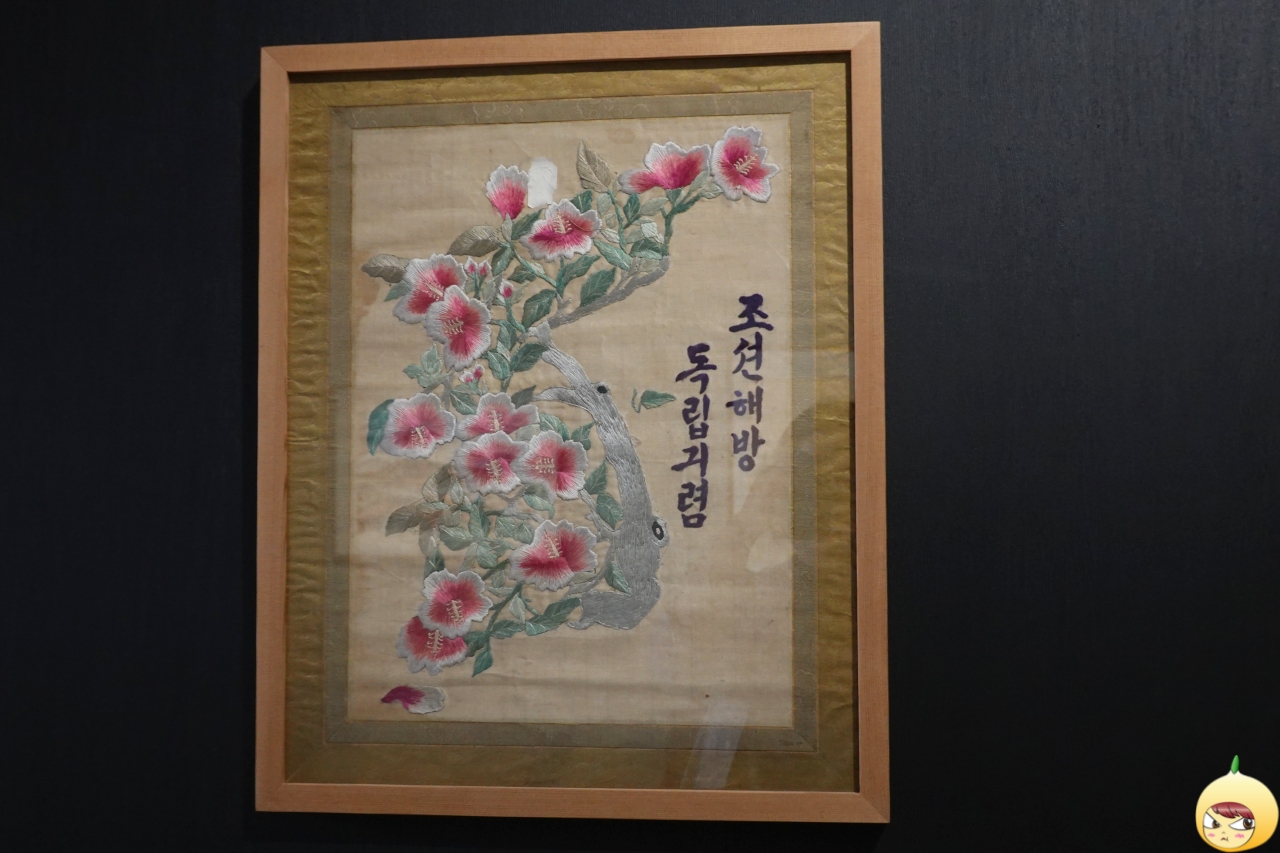 조선해방
독립긔렴